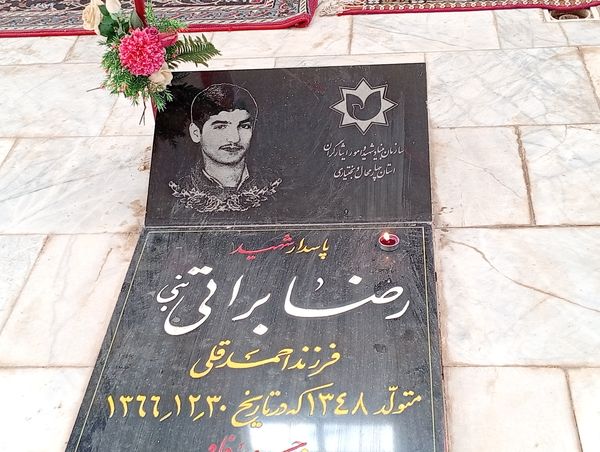 سازمان بنیاد شهید و امور ایثارگران
استان چهارمحال و بختیاری
پاسدار شهید
رضا براتی
فرزند احمدقلی
متولد ۱۳۴۸ که در تاریخ ۳۰ـ۱۲ـ۱۳۶۶